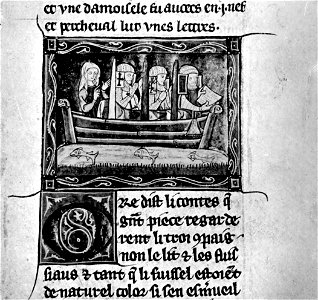 et vne damoisele su autres en .i. nef
et percheual lut vnes lettres.
Ore dist li contes q
gnt piece regarde
rent li troi 9paig
non le lit & les fus
siaus & tant q li fussel estoiēt
de naturel color si sen esmueil